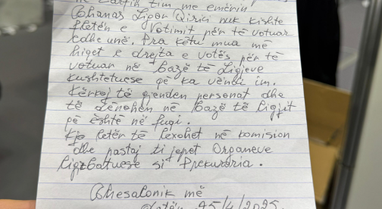 në Zarfin tim me emërin
Thanas Ligor Qirici nuk kishte
fletën e Votimit për të votuar
edhe unë. Pra këtu mua me
hiqet e drejta e votës për të
votuar në bazë të Ligjeve
kushtetuese që ka vëndi im.
Kërkoj të gjenden personat dhe
të dënohen në bazë të ligjit
që është në fuqi.
Kjo letër të lexohet në komision
dhe pastaj ti jepet Organeve
Ligjzbatuese si Prokuroria.
Thesalonik më
Datën 25/4/2025